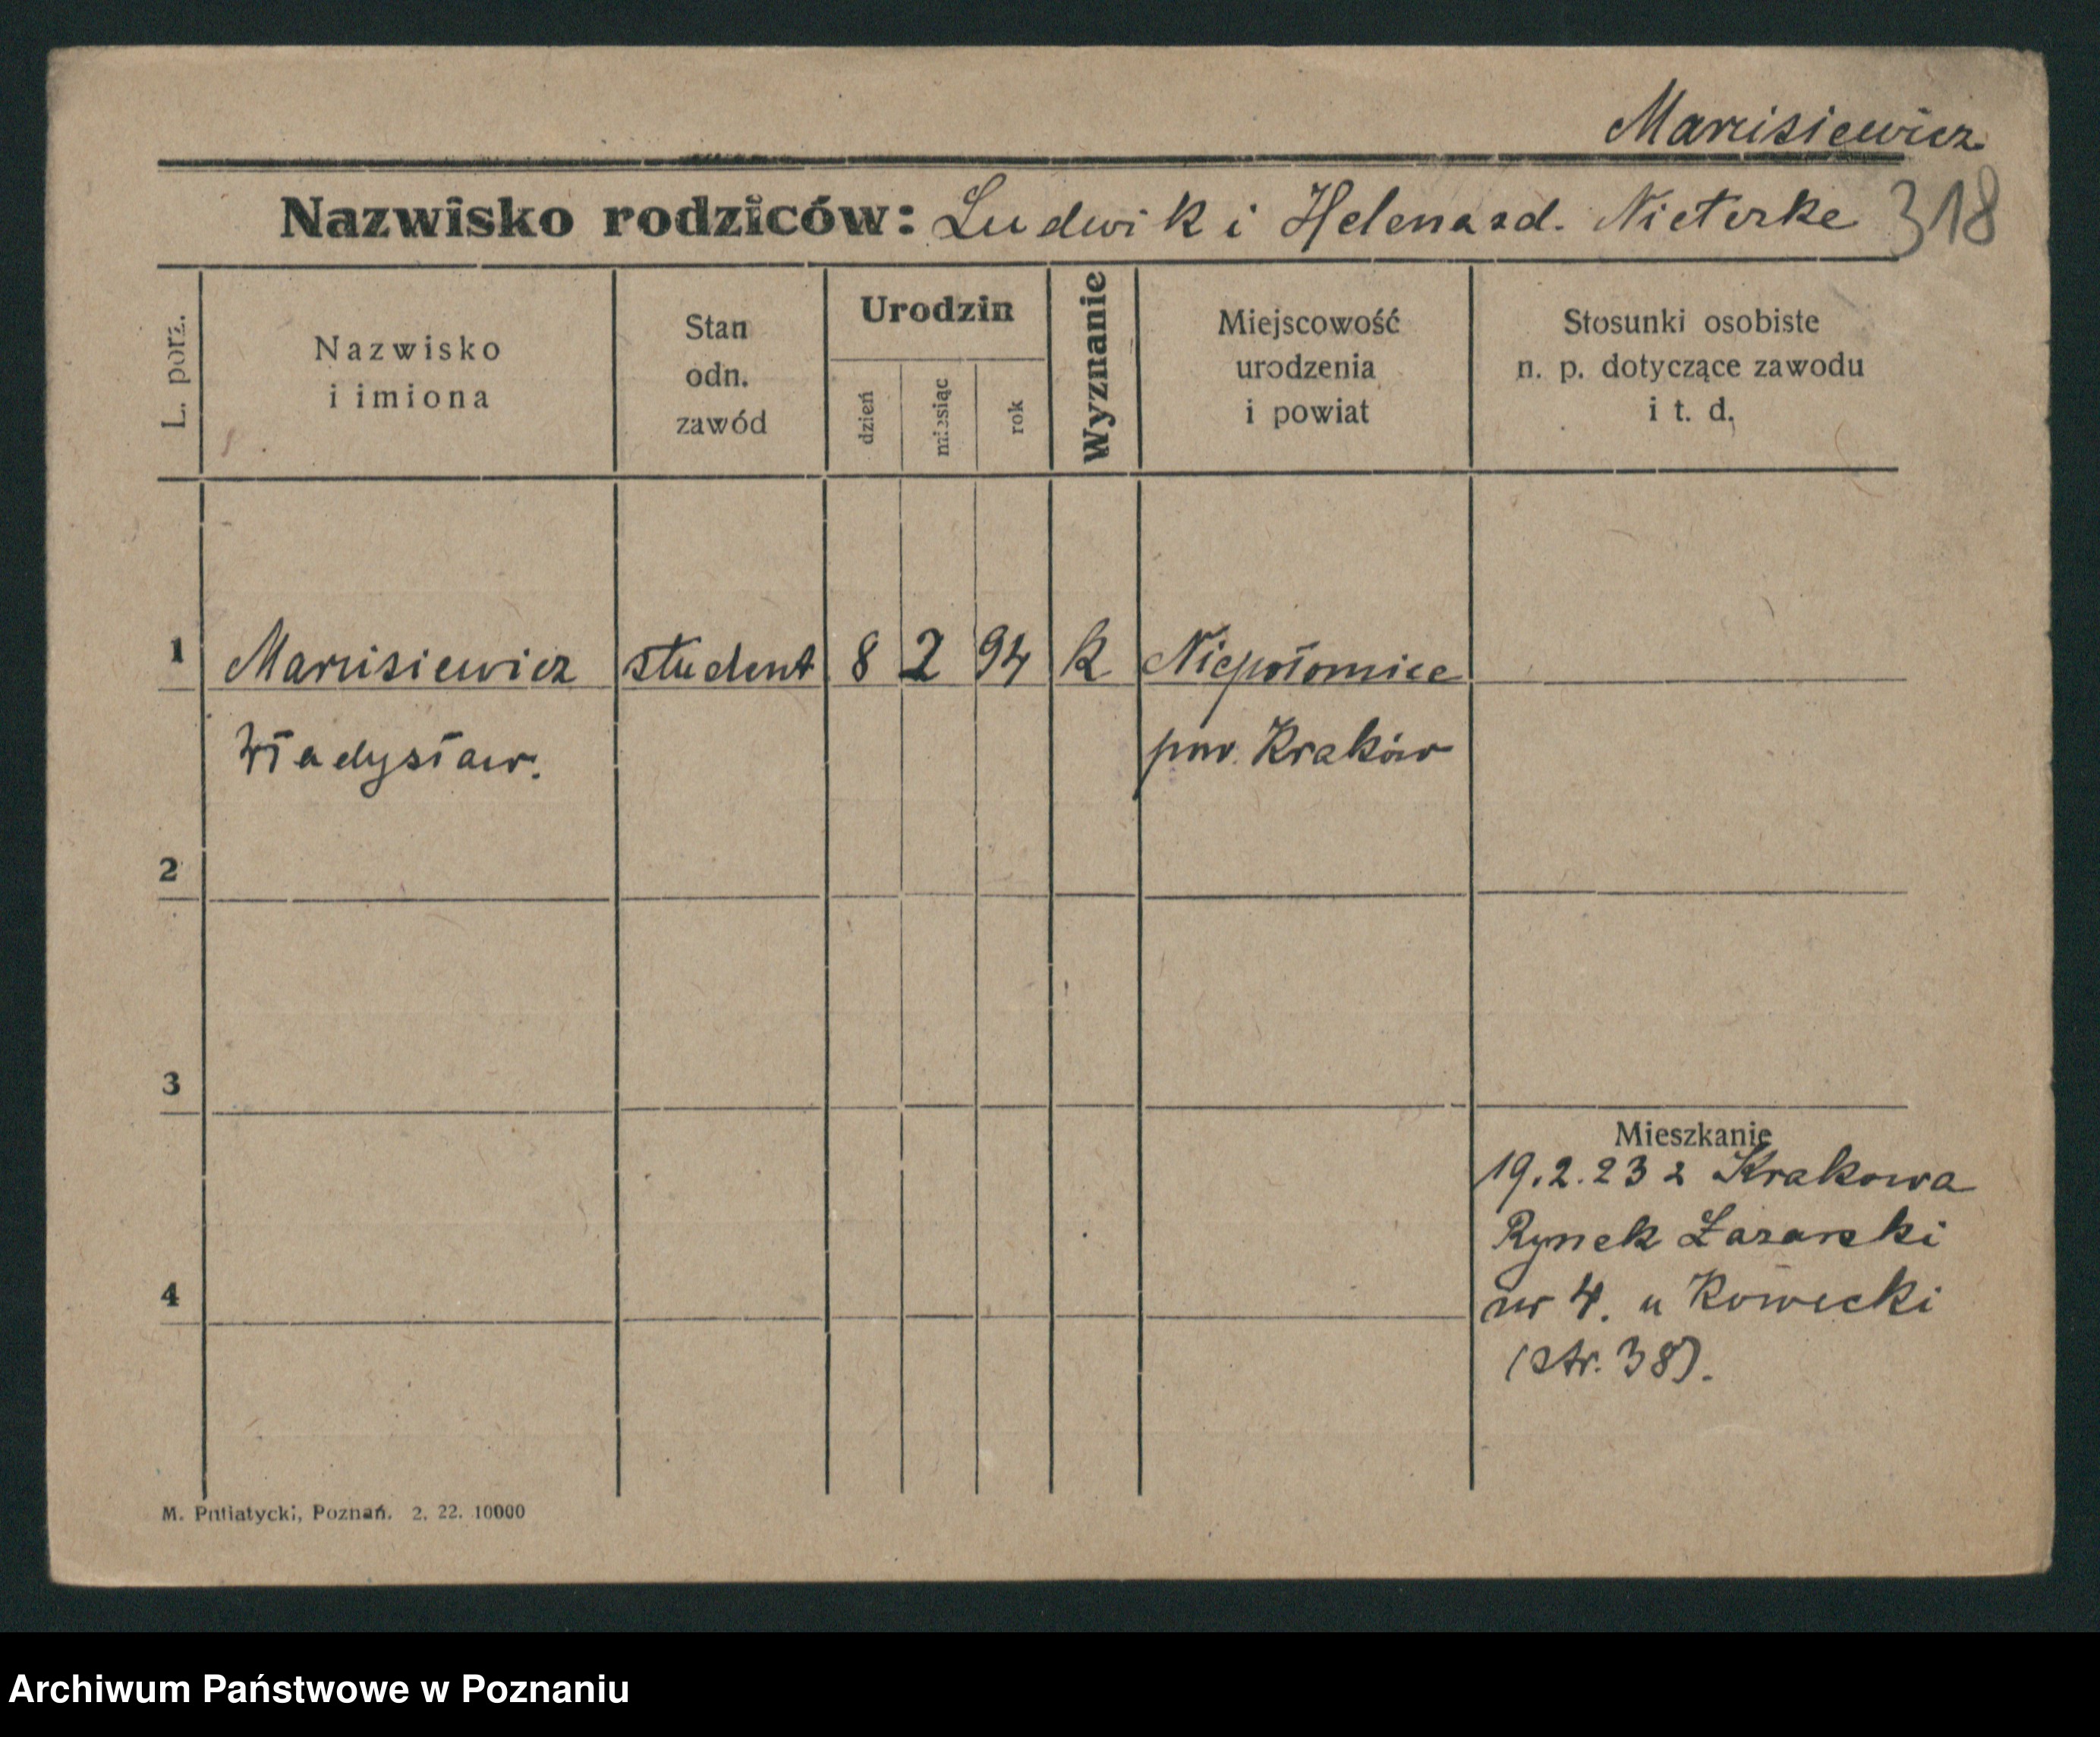 Marcisiewicz
Nazwisko rodziców: Ludwik i Helena zd. Nieterke 318
L. porz.
Nazwisko
i imiona
Stan
odn.
zawód
Urodzin
dzień
miesiąc
rok
Wyznanie
Miejscowość
urodzenia
i powiat
Stosunki osobiste
n. p. dotyczące zawodu
i t. d.
1 Marcisiewicz student 8 2 94 K Niepołomice
Władysław. pow. Kraków
2
3
Mieszkanie
19.2.23 z Krakowa
Rynek Łazarski
4
nr 4. u Kowecki
(str. 38).
M. Putiatycki, Poznań. 2. 22. 10000
Archiwum Państwowe w Poznaniu